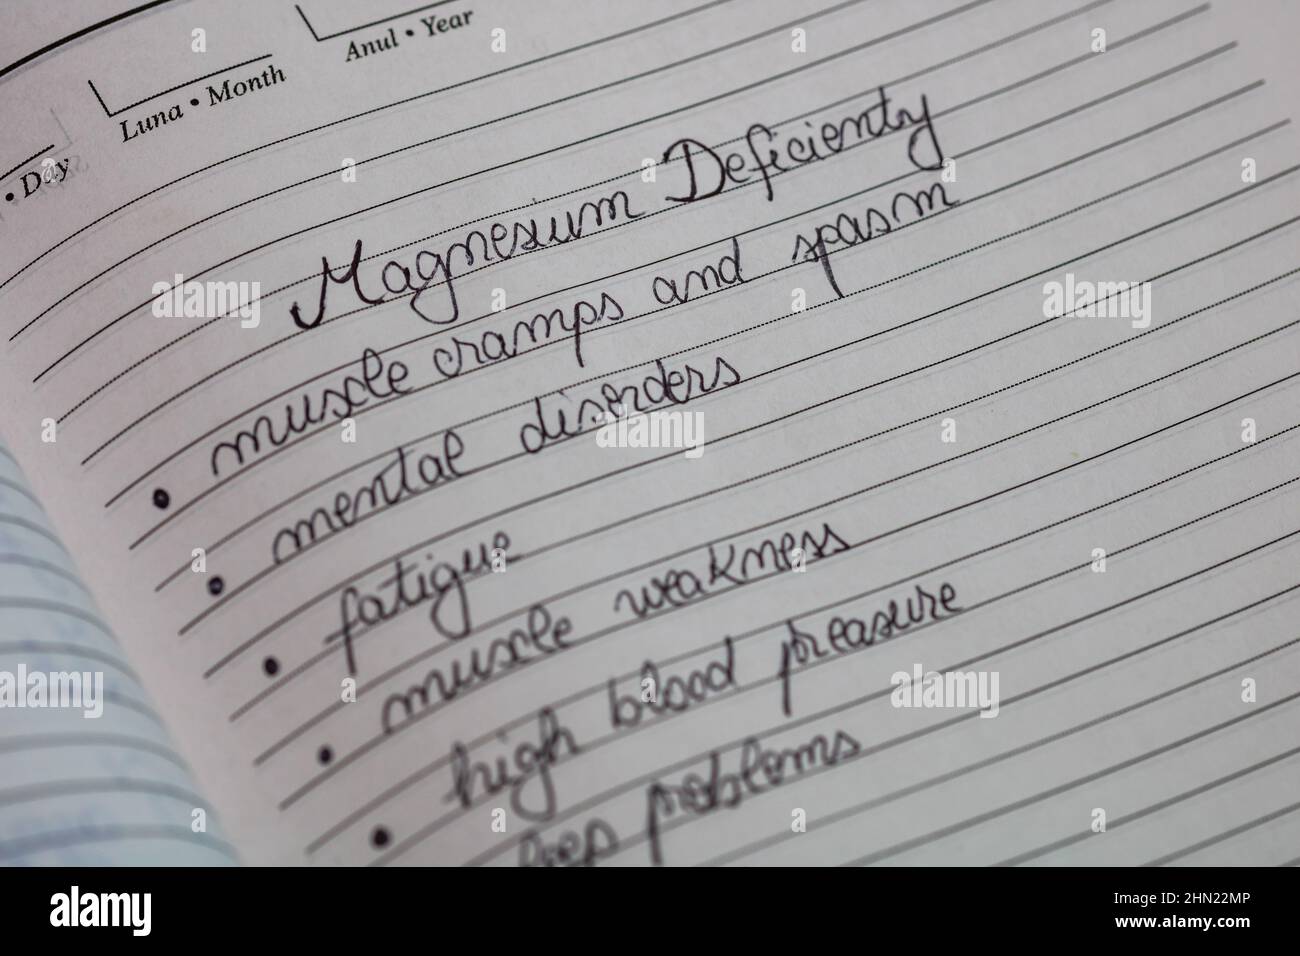 Anul • Year
Luna • Month
• Day
Magnesium Deficienty
• muscle cramps and spasm
• mental disorders
• fatigue
• muscle weakness
• high blood preasure
problems
alamy
Image ID: 2HN22MP
www.alamy.com